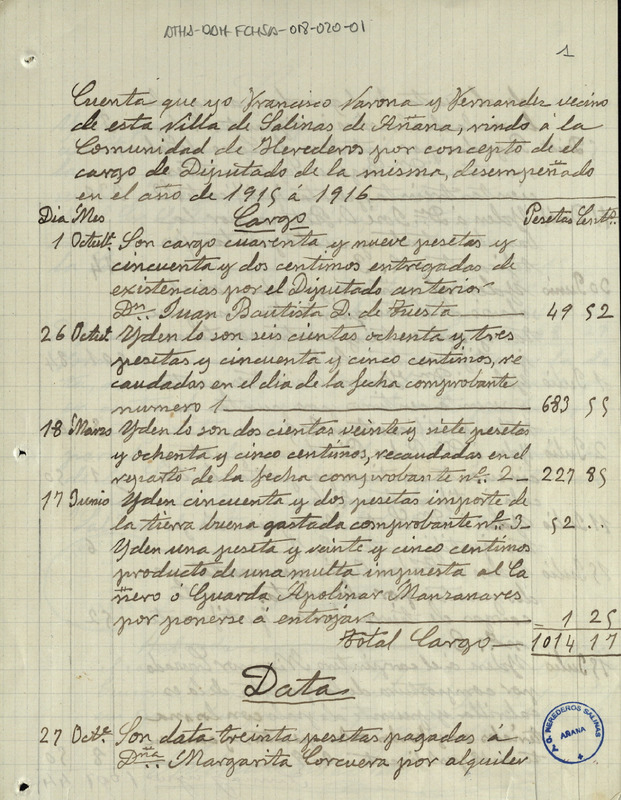 ATHA-DAH-FCHSA-018-020-01
1
Cuenta que yo Francisco Varona y Fernandez vecino
de esta Villa de Salinas de Añana, rindo á la
Comunidad de Herederos por concepto de el
cargo de Diputado de la misma, desempeñado
en el año de 1915 á 1916
Dia Mes Cargo Pesetas Centº.
1 Octubre. Son cargo cuarenta y nueve pesetas y
cincuenta y dos centimos entregadas de
existencias por el Diputado anterior
Dn. Juan Bautista D. de Tuesta 49 52
26 Octut. Yden lo son seis cientas ochenta y tres
pesetas y cincuenta y cinco centimos, re
caudadas en el dia de la fecha comprobante
numero 1 683 55
18 Marzo Yden lo son dos cientas veinte y siete pesetas
y ochenta y cinco centimos, recaudadas en el
reparto de la fecha comprobante nº. 2 227 85
17 Junio Yden cincuenta y dos pesetas importe de
la tierra buena gastada comprobante nº. 3 52 . .
Yden una peseta y veinte y cinco centimos
producto de una multa impuesta al Ca
ñero ó Guarda Apolinar Manzanares
por ponerse á entrojar 1 25
Total Cargo 1014 17
Data
27 Octe. Son data treinta pesetas pagadas á
Dña. Margarita Corcuera por alquiler
HEREDEROS SALINAS
AÑANA